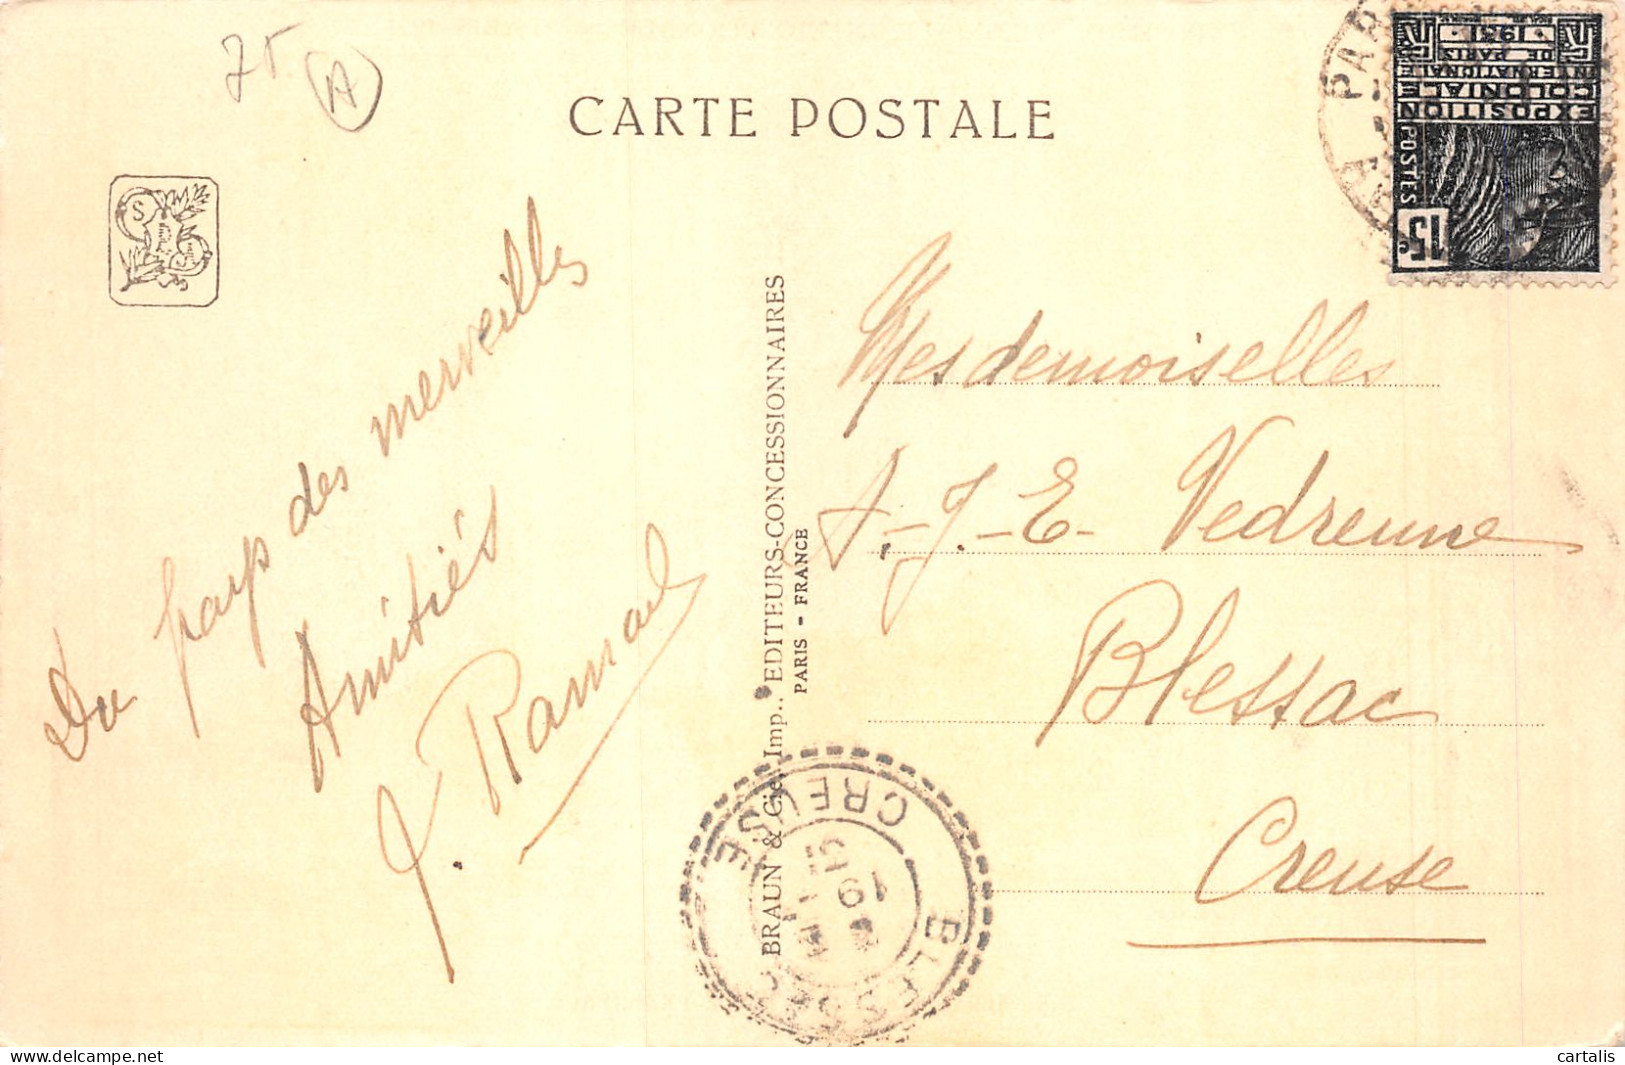 75
A
CARTE POSTALE
S
Du pays des merveilles
Amitiés
BRAUN & Cie, Imp., EDITEURS-CONCESSIONNAIRES
PARIS - FRANCE
EXPOSITION
COLONIALE
INTERNATIONALE
DE PARIS
·1931·
POSTES
15c
PAR
Mesdemoiselles
A.-J.-E- Vedrenne
Blessac
Creuse
BLESSAC
CREUSE
https://www.delcampe.net
cartalis